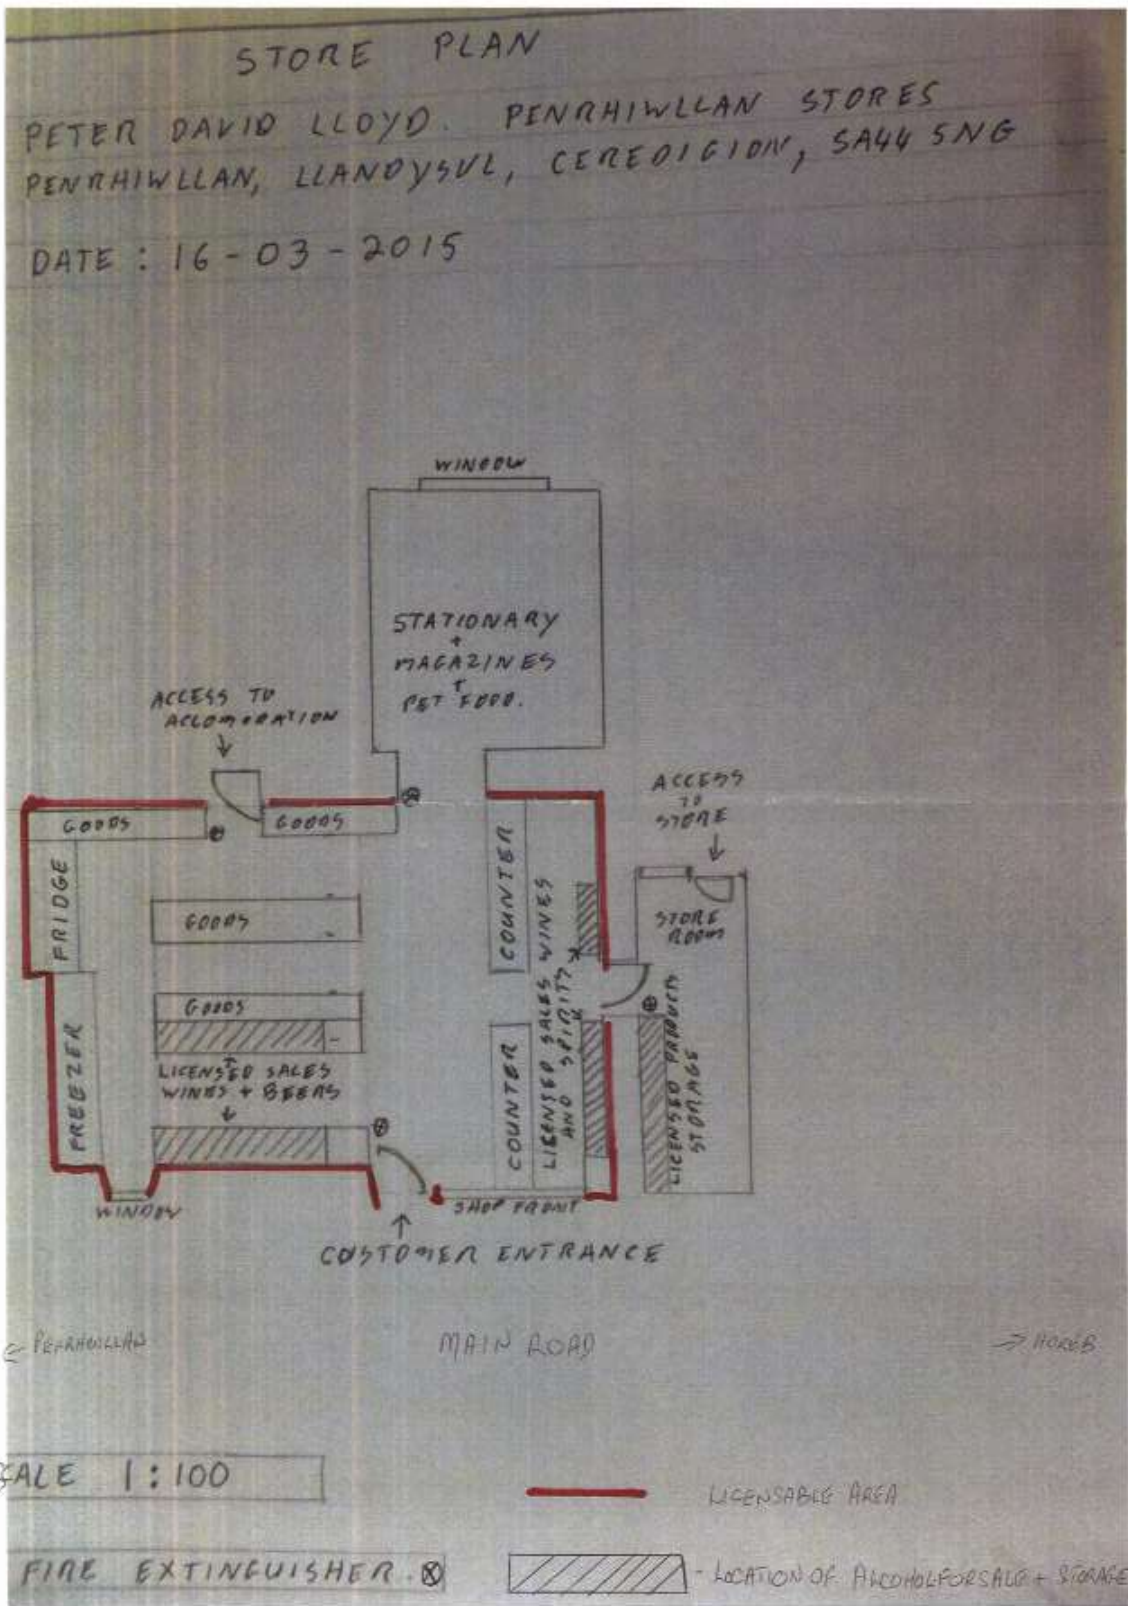 STORE PLAN
PETER DAVID LLOYD. PENRHIWLLAN STORES
PENRHIWLLAN, LLANDYSUL, CEREDIGION, SA44 5NG
DATE : 16-03-2015
WINDOW
STATIONARY
+
MAGAZINES
+
PET FOOD.
ACCESS TO
ACCOMODATION
ACCESS
TO
STORE
GOODS
GOODS
FRIDGE
GOODS
COUNTER
STORE
ROOM
GOODS
FREEZER
LICENSED SALES
WINES + BEERS
COUNTER
LICENSED SALES WINES
AND SPIRITS
LICENSED PRODUCTS
STORAGE
WINDOW
SHOP FRONT
CUSTOMER ENTRANCE
← PENRHIWLLAN
MAIN ROAD
→ HOREB
SCALE 1:100
LICENSABLE AREA
FIRE EXTINGUISHER. ⊗
- LOCATION OF ALCOHOL FOR SALE + STORAGE